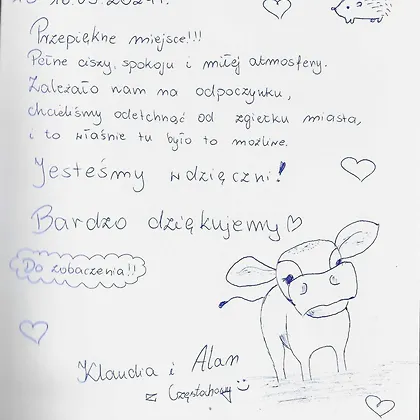 10.05.2024r.
Przepiękne miejsce!!!
Pełne ciszy, spokoju i miłej atmosfery.
Zależało nam na odpoczynku,
chcieliśmy odetchnąć od zgiełku miasta,
i to właśnie tu było to możliwe.
Jesteśmy wdzięczni!
Bardzo dziękujemy
Do zobaczenia!!
Klaudia i Alan
z Częstochowy